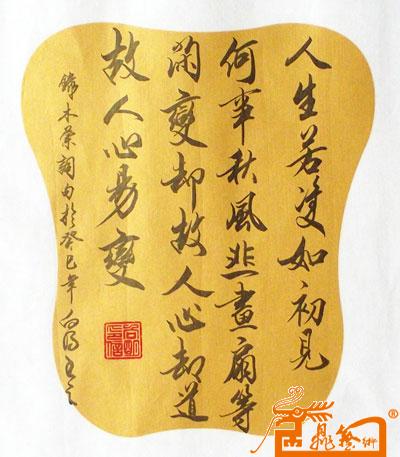 人生若隻如初見
何事秋風悲畫扇等
閑變却故人心却道
故人心易變
木詞句於癸巳年
藝術